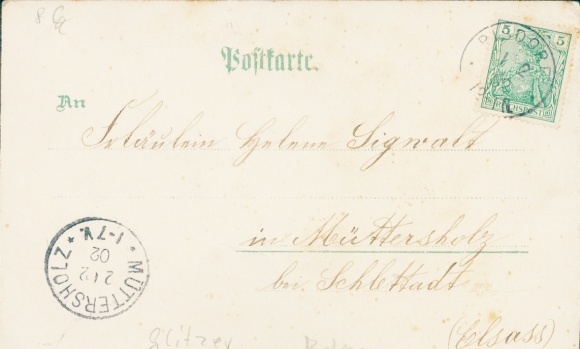 8
5 5
Postkarte.
REICHSPOST
An
Fräulein Helene Sigwalt
in Müttersholz
bei Schlettstadt
(Elsass)
MÜTTERSHOLZ
1-7V.
02
glitzer